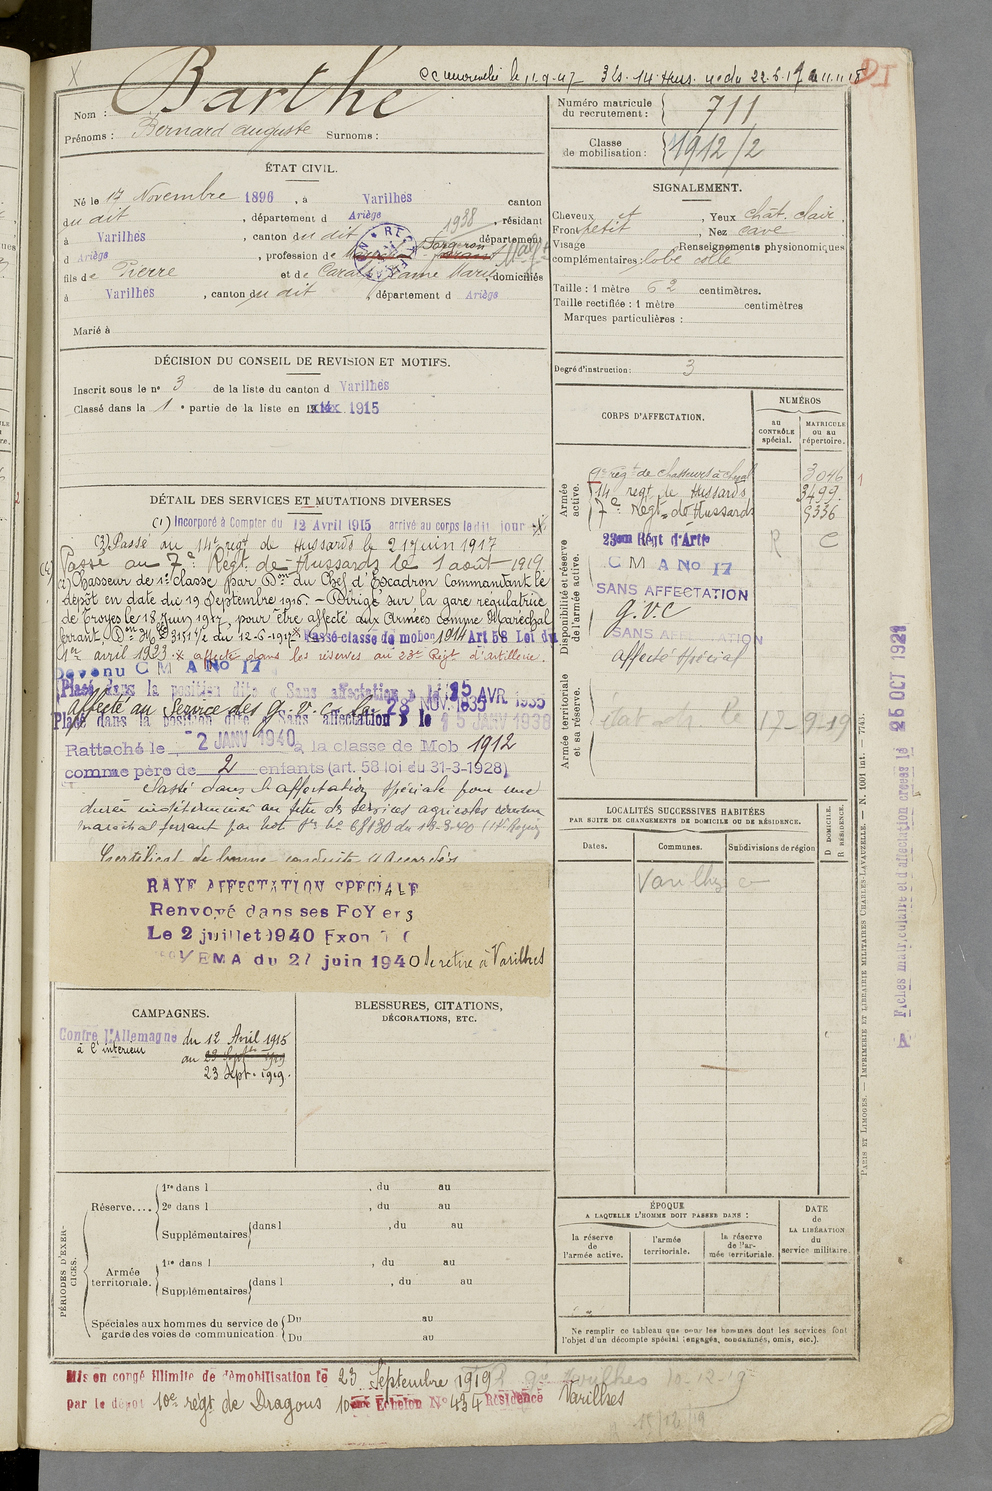 Barthe
cc 11-9-47 3 b. 14 Hus. du 22-6-17 11.11.18
DI
Nom :
Prénoms : Bernard Auguste Surnoms :
ÉTAT CIVIL.
Né le 17 Novembre 1896, à Varilhes canton
du dit, département d Ariège, résidant
à Varilhes, canton du dit 1938 département
d Ariège, profession de Forgeron
fils de Pierre et de Marie, domiciliés
à Varilhes, canton du dit, département d Ariège
Marié à
DÉCISION DU CONSEIL DE REVISION ET MOTIFS.
Inscrit sous le n° 3 de la liste du canton d Varilhes
Classé dans la 1e partie de la liste en 1915
DÉTAIL DES SERVICES ET MUTATIONS DIVERSES
(1) Incorporé à Compter du 12 Avril 1915 arrivé au corps le dit jour
(3) Passé au 14e regt de Hussards le 21 juin 1917
Passé au 7e Régt de Hussards le 1 août 1919
Chasseur de 1e classe par Don du Chef d'Escadron Commandant le
dépôt en date du 19 Septembre 1916. - Dirigé sur la gare régulatrice
de Troyes le 18 Juin 1917, pour être affecté aux Armées comme Maréchal
ferrant Don Mlle 3151 1/2 du 12-6-1917 Passé classe de mob on 1914 Art 58 Loi du
1er avril 1923 affecté dans les réserves au 23e Régt d'artillerie.
Devenu C M A No 17
Placé dans la position dite « Sans affectation » le 15 AVR. 1935
affecté au Service des G.V.C. le 28 NOV. 1935
Placé dans la position dite « Sans affectation » le 15 JANV 1938
Rattaché le 2 JANV 1940 à la classe de Mob 1912
comme père de 2 enfants (art. 58 loi du 31-3-1928)
Passé dans l'affectation spéciale pour une
durée indéterminée au titre des services agricoles comme
maréchal ferrant par Not
Certificat de bonne conduite Accordé
RAYE AFFECTATION SPECIALE
Renvoyé dans ses FoYers
Le 2 juillet 1940
EMA du 27 juin 1940 se retire à Varilhes
CAMPAGNES.
Contre l'Allemagne du 12 Avril 1915
à l'intérieur au 23 Sept 1919
23 Sept. 1919.
BLESSURES, CITATIONS,
DÉCORATIONS, ETC.
PÉRIODES D'EXERCICES.
Réserve.... 1re dans l , du au
2e dans l , du au
Supplémentaires dans l , du au
Armée territoriale. 1re dans l , du au
Supplémentaires dans l , du au
Spéciales aux hommes du service de garde des voies de communication Du au
Du au
Mis en congé illimité de démobilisation le 23 Septembre 1919
par le dépôt 10e regt de Dragons 10ème Echelon N° 434 Résidence Varilhes
15/12/19
Numéro matricule du recrutement : 711
Classe de mobilisation : 1912/2
SIGNALEMENT.
Cheveux et, Yeux chât. clair.
Front petit, Nez cave
Visage Renseignements physionomiques
complémentaires : lobe collé
Taille : 1 mètre 62 centimètres.
Taille rectifiée : 1 mètre centimètres
Marques particulières :
Degré d'instruction : 3
CORPS D'AFFECTATION.
NUMÉROS
au CONTRÔLE spécial.
MATRICULE ou au répertoire.
Armée active.
9e regt de chasseurs à cheval 3046
14e regt de Hussards 3499
7e Régt de Hussards 9336
Disponibilité et réserve de l'armée active.
23em Régt d'Artie R C
C M A No 17
SANS AFFECTATION
G.V.C
SANS AFFECTATION
affecté spécial
Armée territoriale et sa réserve.
17-9-19
LOCALITÉS SUCCESSIVES HABITÉES
PAR SUITE DE CHANGEMENTS DE DOMICILE OU DE RÉSIDENCE.
Dates.
Communes.
Subdivisions de région
D DOMICILE.
R RÉSIDENCE.
Varilhes
ÉPOQUE
A LAQUELLE L'HOMME DOIT PASSER DANS :
la réserve de l'armée active.
l'armée territoriale.
la réserve de l'armée territoriale.
DATE de LA LIBÉRATION du service militaire.
Ne remplir ce tableau que pour les hommes dont les services font
l'objet d'un décompte spécial (engagés, condamnés, omis, etc.).
PARIS ET LIMOGES. — IMPRIMERIE ET LIBRAIRIE MILITAIRES CHARLES-LAVAUZELLE. — N. 1001 int. — 7743.
A Fiches matriculaire et d'affectation créées le 26 OCT 1921